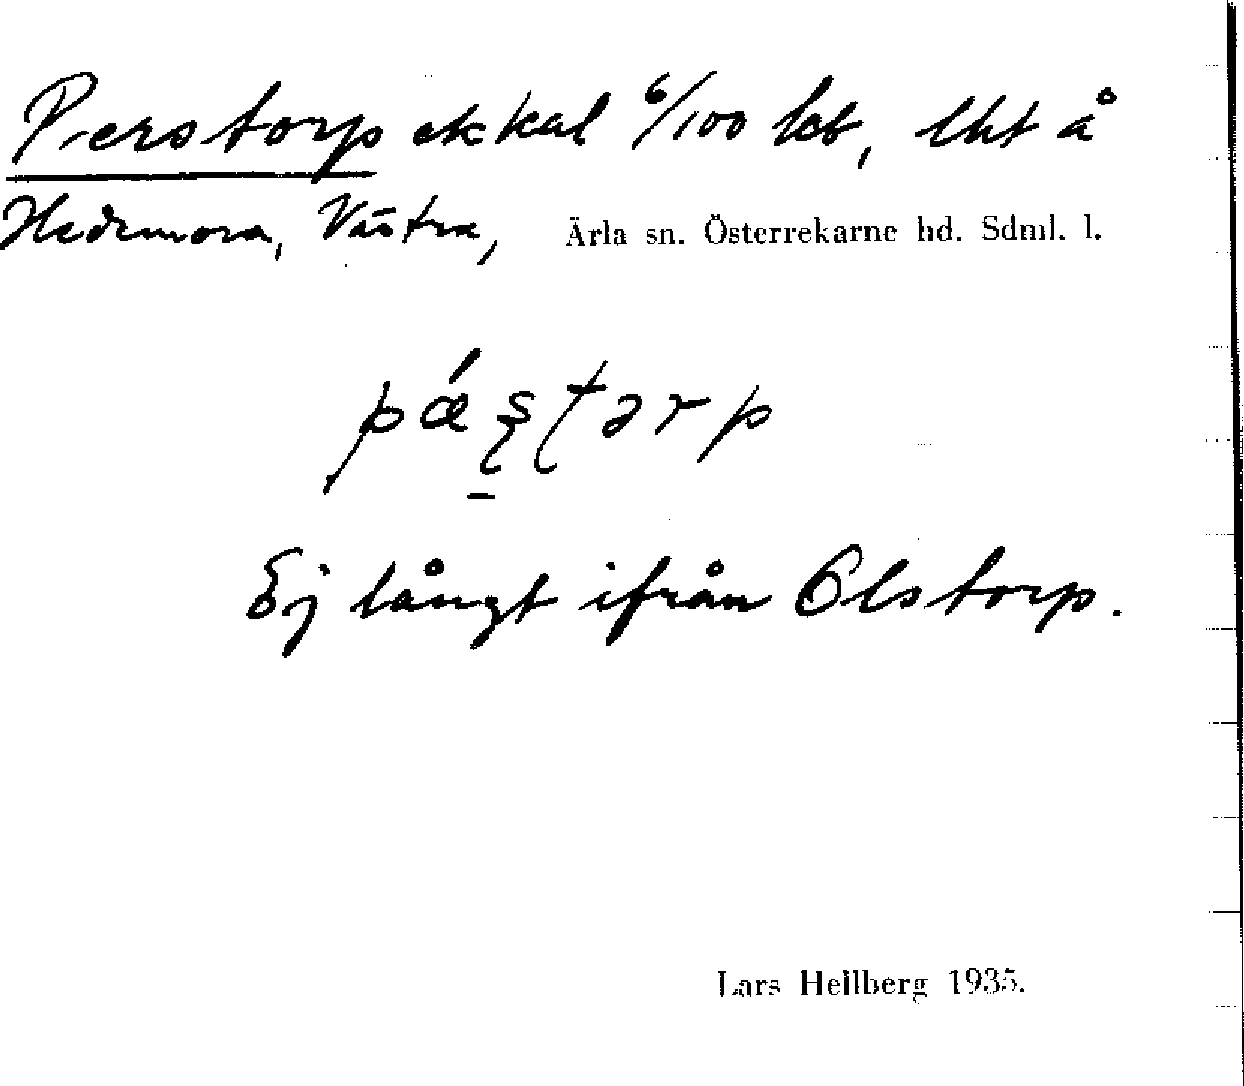 Perstorp ekkal 6/100 kb, lht å
Hedemora, Västra, Ärla sn. Österrekarne hd. Sdml. l.
pǽʂʈərp
Ej långt ifrån Olstorp.
Lars Hellberg 1935.